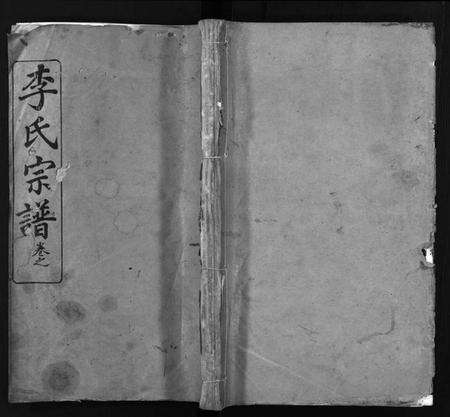 李氏宗譜
卷之